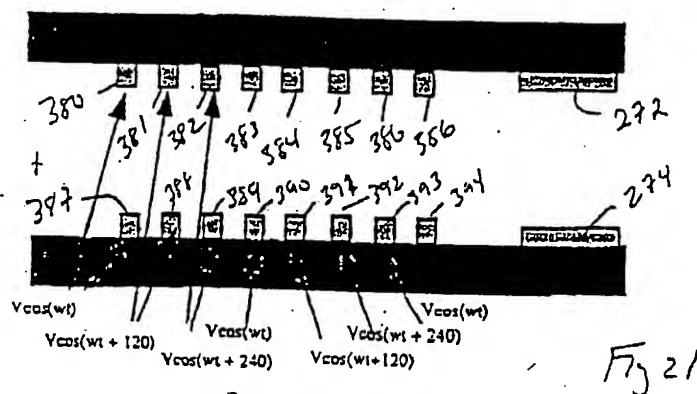 380 381 382 383 384 385 386 386 272
+
387 388 389 390 397 392 393 394 274
Vcos(wt)
Vcos(wt + 120)
Vcos(wt + 240)
Vcos(wt)
Vcos(wt+120)
Vcos(wt + 240)
Vcos(wt)
Fig 21